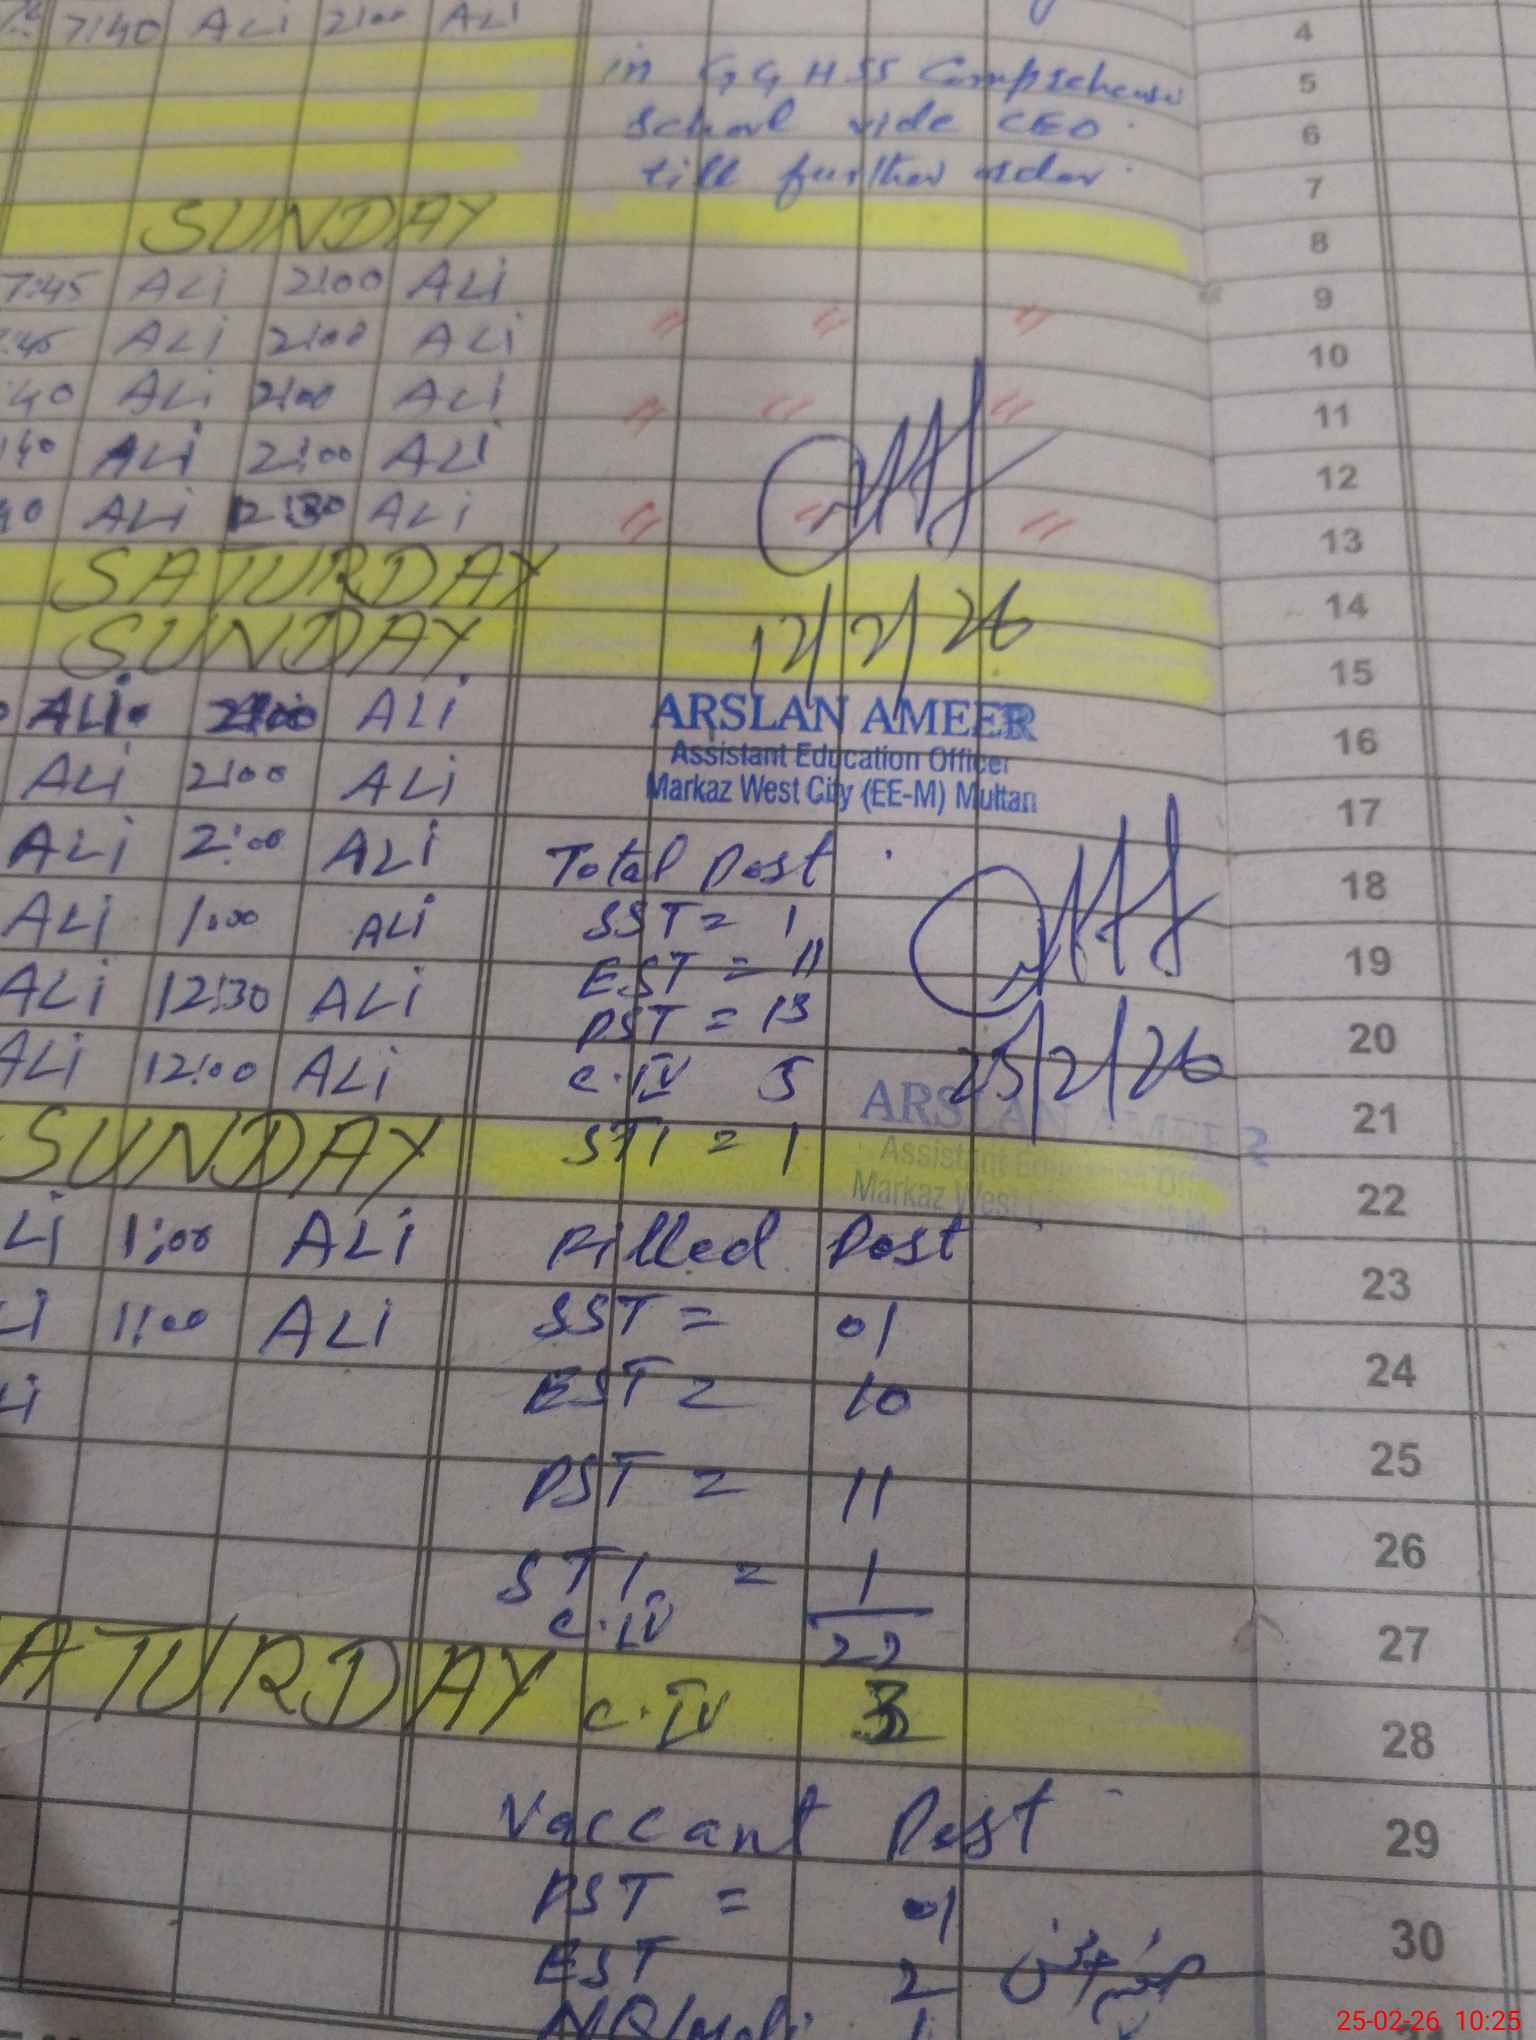 7:40 ALi 2:00 ALi
4
in GGHSS Comprehensi
5
School vide CEO
6
till further order
7
SUNDAY
8
7:45 ALi 2:00 ALi
9
:45 ALi 2:00 ALi
10
:40 ALi 2:00 ALi
11
:40 ALi 2:00 ALi
12
40 ALi 12:30 ALi
13
SATURDAY
14
SUNDAY 12/2/26
15
ALi 2:00 ALi
ARSLAN AMEER
16
Assistant Education Officer
Markaz West City (EE-M) Multan
ALi 2:00 ALi
17
ALi 2:00 ALi Total Post
18
ALi 1:00 ALi SST = 1
19
EST = 11
ALi 12:30 ALi PST = 13
20
ALi 12:00 ALi C.IV 5 25/2/26
21
ARSLAN AMEE
SUNDAY STI = 1
Assistant Education Offi
Markaz West
22
Li 1:00 ALi Filled Post
23
Li 1:00 ALi SST = 01
24
Li EST = 10
25
PST = 11
26
STI = 1
C.IV 22
27
ATURDAY C.IV 3
28
Vaccant Post
29
PST = 01
30
EST 2
25-02-26 10:25